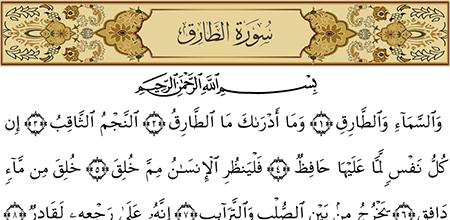 سُورَةُ الطَّارِقِ
بِسْمِ اللَّهِ الرَّحْمَٰنِ الرَّحِيمِ
وَٱلسَّمَآءِ وَٱلطَّارِقِ ﴿١﴾ وَمَآ أَدْرَىٰكَ مَا ٱلطَّارِقُ ﴿٢﴾ ٱلنَّجْمُ ٱلثَّاقِبُ ﴿٣﴾ إِن
كُلُّ نَفْسٍ لَّمَّا عَلَيْهَا حَافِظٌ ﴿٤﴾ فَلْيَنظُرِ ٱلْإِنسَٰنُ مِمَّ خُلِقَ ﴿٥﴾ خُلِقَ مِن مَّآءٍ
دَافِقٍ ﴿٦﴾ يَخْرُجُ مِنۢ بَيْنِ ٱلصُّلْبِ وَٱلتَّرَآئِبِ ﴿٧﴾ إِنَّهُۥ عَلَىٰ رَجْعِهِۦ لَقَادِرٌ ﴿٨﴾